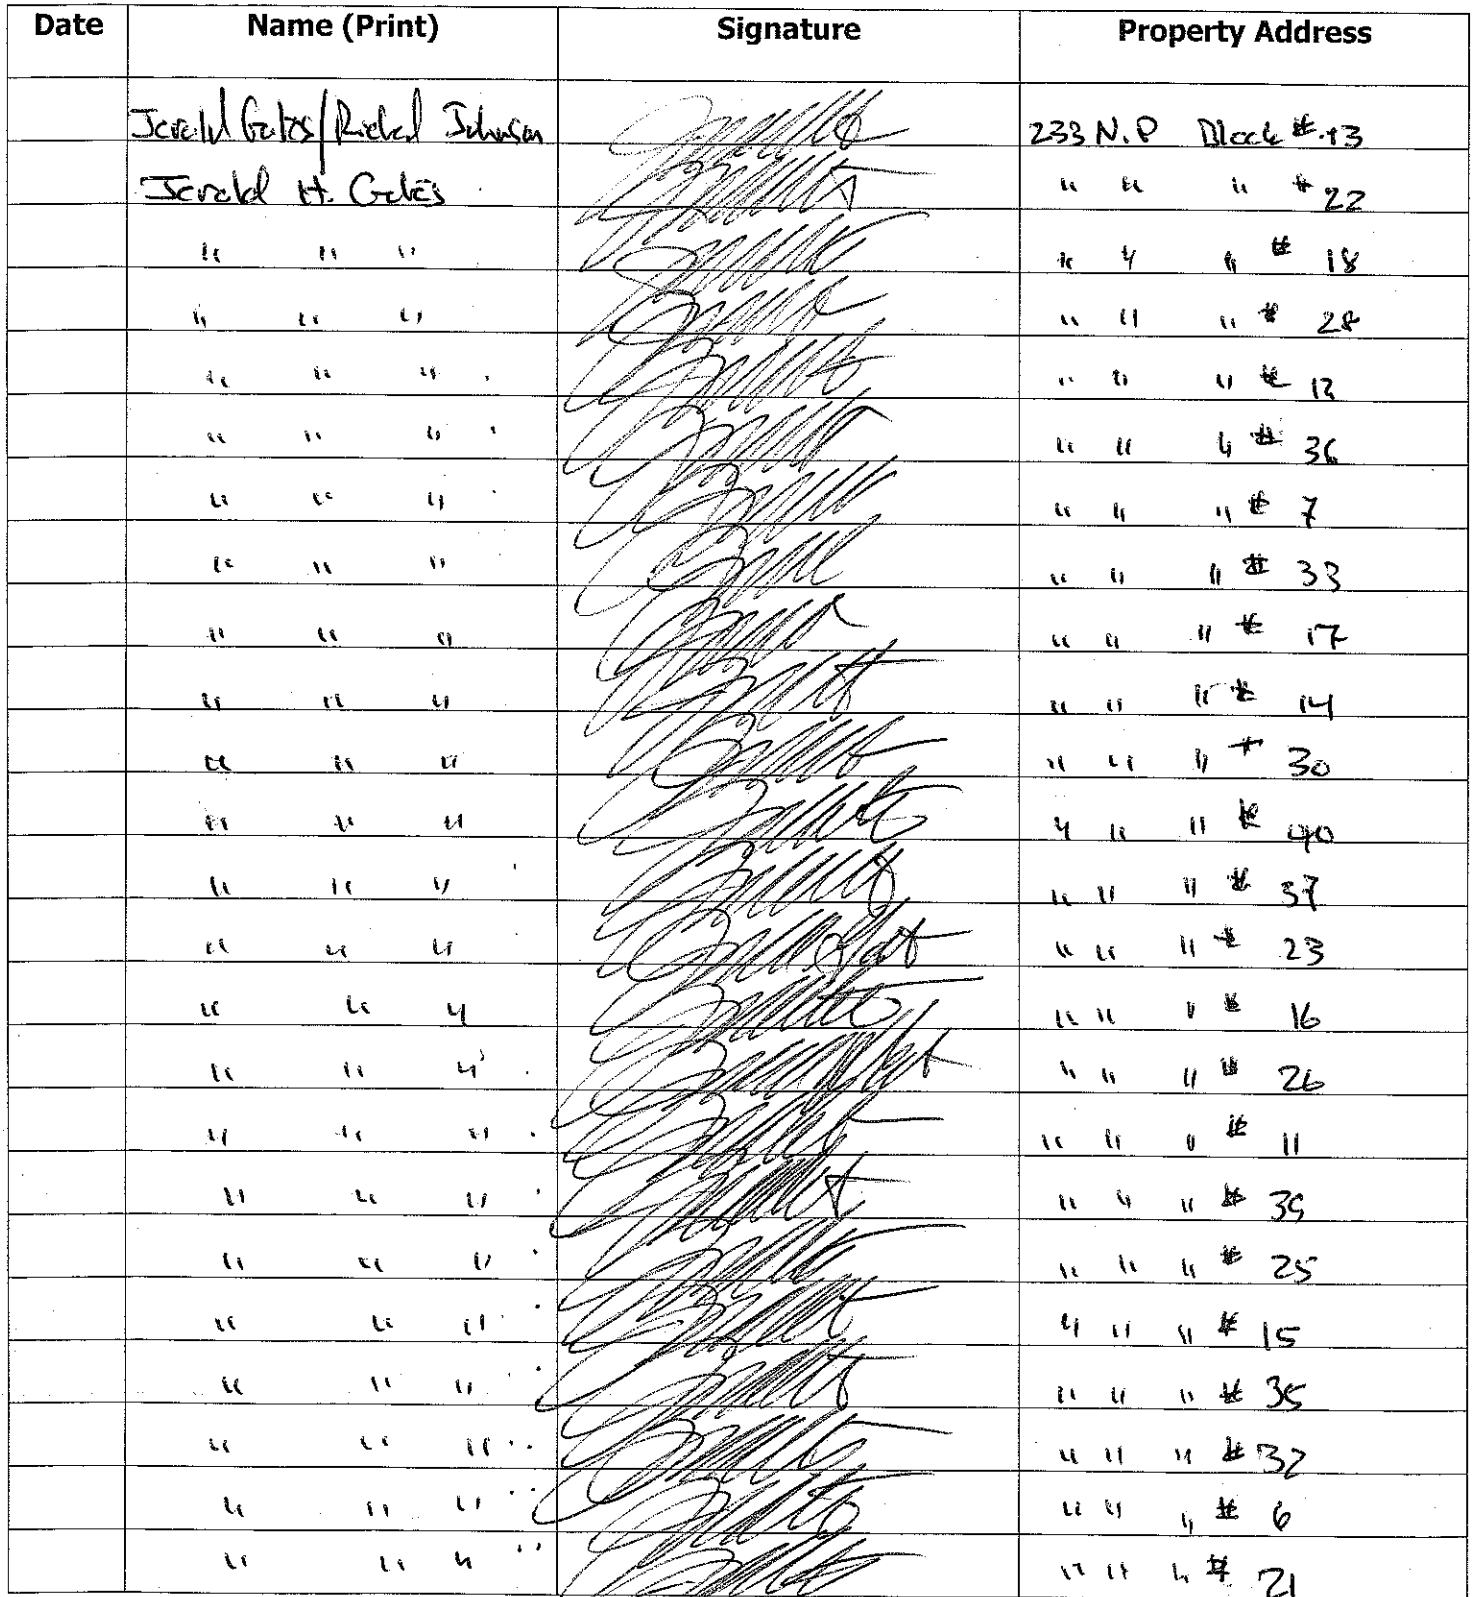 Date Name (Print) Signature Property Address
Jerald Gates/Richard Johnson 233 N.P Block #13
Jerald H. Gates " " " # 22
" " " " " " # 18
" " " " " " # 28
" " " " " " # 12
" " " " " " # 36
" " " " " " # 7
" " " " " " # 33
" " " " " " # 17
" " " " " " # 14
" " " " " " # 30
" " " " " " # 40
" " " " " " # 37
" " " " " " # 23
" " " " " " # 16
" " " " " " # 26
" " " " " " # 11
" " " " " " # 39
" " " " " " # 25
" " " " " " # 15
" " " " " " # 35
" " " " " " # 32
" " " " " " # 6
" " " " " " # 21